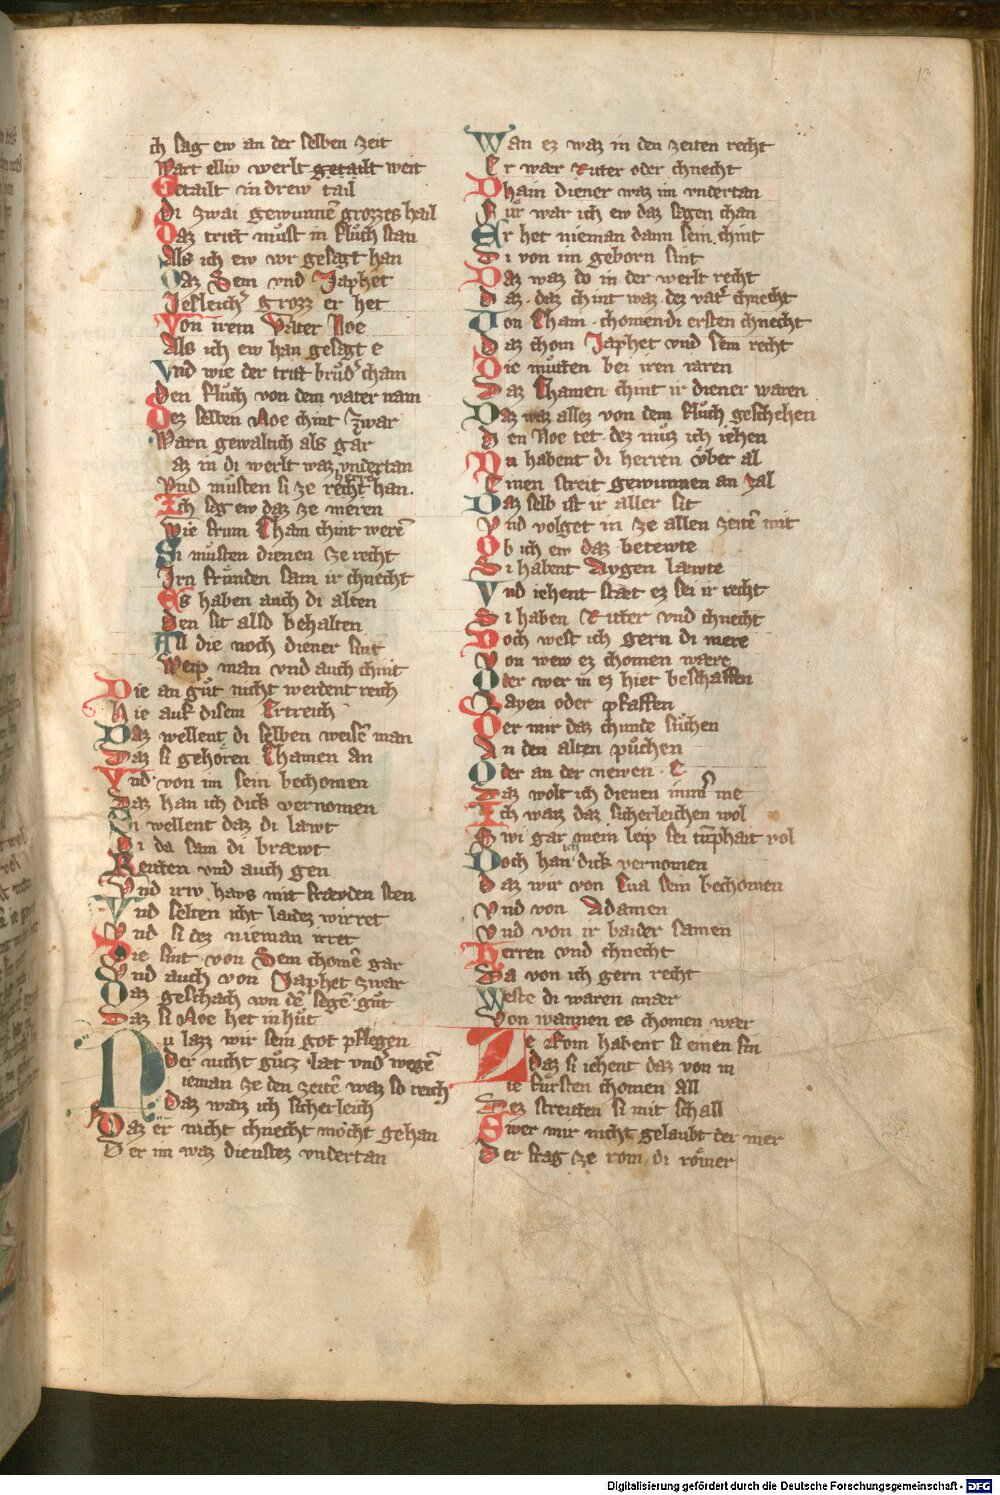 13
ich sag ew an der selben zeit
Wart elliv werlt getailt weit
Getailt in drew tail
Di zwai gewunnē grozzes hail
Daz tritt můst in flůch stan
Als ich ew vor gesagt han
Daz Sem vnd Japhet
Jesleich grozz er het
Von irem Vater Noe
Als ich ew han gesagt e
Vnd wie der tritt brůd' cham
Den flůch von dem vater nam
Dez selben Noe chint zwar
Warn gewaltich als gar
az in di werlt waz vndertan
Vnd můsten si ze herren recht han.
Ich sag ew daz ze meren
Wie frum Cham chint werē
Si můsten dienen ze recht
Irn frůnden sam ir chnecht
Es haben auch di alten
Den sit also behalten
All die noch diener sint
Weip man vnd auch chint
Die an gůt nicht werdent reich
Hie auf disem Ertreich
Daz wellent di selben weisē man
Daz si gehoren Chamen an
Vnd von im sein bechomen
Daz han ich dick vernomen
Si wellent daz di lawt
Di da sam di bræwt
Reitten vnd auch gen
Vnd irw havs mit frævden sten
Vnd selten icht laidez wirret
Vnd si dez nieman irret
Die sint von Sem chomē gar
Vnd auch von Japhet zwar
Daz geschach von dē segē gůt
Daz si Noe het in hůt
Nu lazz wir sein got pflegen
Der nicht gůtz læt vnd' wegē
ieman ze den zeitē waz so reich
Daz waiz ich sicherleich
Daz er nicht chnecht mocht gehan
Der im waz dienstez vndertan
Wan ez waz in den zeiten recht
Er wær Riter oder chnecht
Dhain diener waz im vndertan
Fůr war ich ew daz sagen chan
Er het nieman dann sein chint
Di von im geborn sint
Daz waz do in der werlt recht
Daz . daz chint waz dez vat's chnecht
Von Cham . chomen di ersten chnecht
Daz chom Japhet vnd sem recht
Die můsten bei iren iaren
Daz Chamen chint ir diener waren
Daz waz allez von dem flůch geschehen
Den Noe tet dez můz ich iehen
Nu habent di herren vber al
Einen streit gewunnen an zal
Daz selb ist ir aller sit
Vnd volget in ze allen zeitē mit
Ob ich ew daz betewte
Si habent Aygen lawte
Vnd iehent stæt ez sei ir recht
Si haben Ritter vnd chnecht
Doch west ich gern di mere
Von wew ez chomen wære
Oder wer in ez hiet beschaffen
Layen oder pfaffen
Der mir daz chunde sůchen
An den alten půchen
Oder an der newen . E
Daz wolt ich dienen imm' me
Ich waiz daz sicherleichen wol
Swi gar mein leip sei tumphait vol
Doch han ich dick vernomen
Daz wir von Eua sein bechomen
Vnd von Adamen
Vnd von ir baider samen
Herren vnd chnecht
Da von ich gern recht
Weste di waren mær
Von wannen es chomen wær
Ze Rom habent si einen sin
Daz si iehent daz von in
ie fursten chomen All
Dez streitten si mit schall
Swer mir nicht gelaubt der mer
Der frag ze rom di rômer
Digitalisierung gefördert durch die Deutsche Forschungsgemeinschaft - DFG